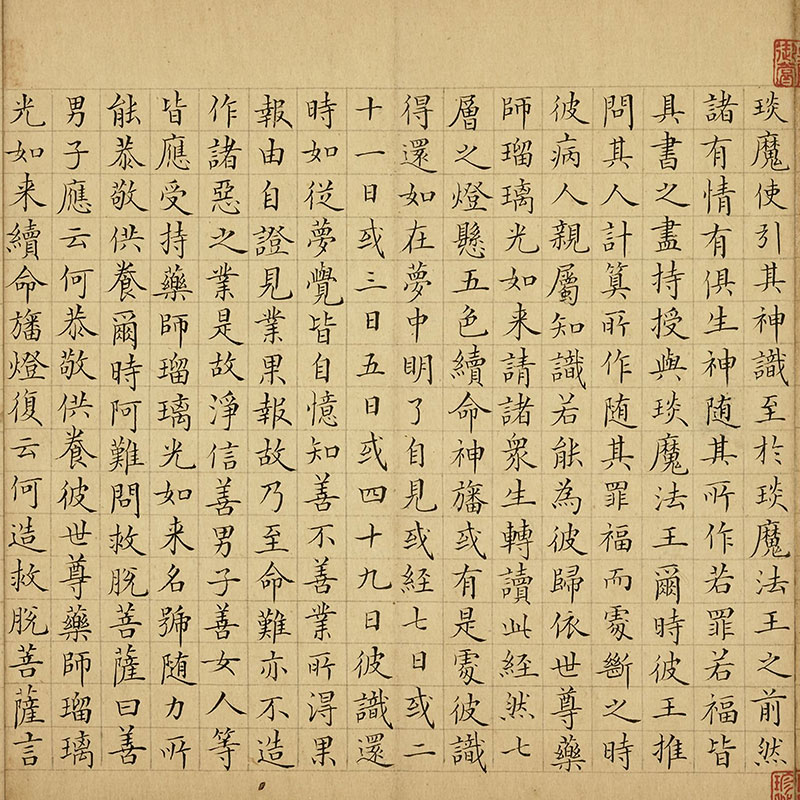 琰魔使引其神識至於琰魔法王之前然
諸有情有俱生神随其所作若罪若福皆
具書之盡持授與琰魔法王爾時彼王推
問其人計算所作随其罪福而處斷之時
彼病人親屬知識若能為彼歸依世尊藥
師瑠璃光如来請諸衆生轉讀此経然七
層之燈懸五色續命神旛或有是處彼識
得還如在夢中明了自見或経七日或二
十一日或三日五日或四十九日彼識還
時如從夢覺皆自憶知善不善業所得果
報由自證見業果報故乃至命難亦不造
作諸惡之業是故淨信善男子善女人等
皆應受持藥師瑠璃光如来名號随力所
能恭敬供養爾時阿難問救脫菩薩曰善
男子應云何恭敬供養彼世尊藥師瑠璃
光如来續命旛燈復云何造救脫菩薩言